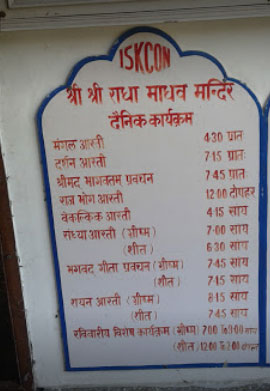 ISKCON
श्री श्री राधा माधव मन्दिर
दैनिक कार्यक्रम
मंगल आरती 4.30 प्रातः
दर्शन आरती 7.15 प्रातः
श्रीमद भागवतम प्रवचन 7.45 प्रातः
राज भोग आरती 12.00 दोपहर
वैकल्किक आरती 4.15 सायं
संध्या आरती (ग्रीष्म) 7.00 सायं
(शीत) 6.30 सायं
भगवद गीता प्रवचन (ग्रीष्म) 7.45 सायं
(शीत) 7.45 सायं
शयन आरती (ग्रीष्म) 8.15 सायं
(शीत) 7.45 सायं
रविवारीय विशेष कार्यक्रम (ग्रीष्म) 7.00 To 9.00 सायं
(शीत) 12.00 To